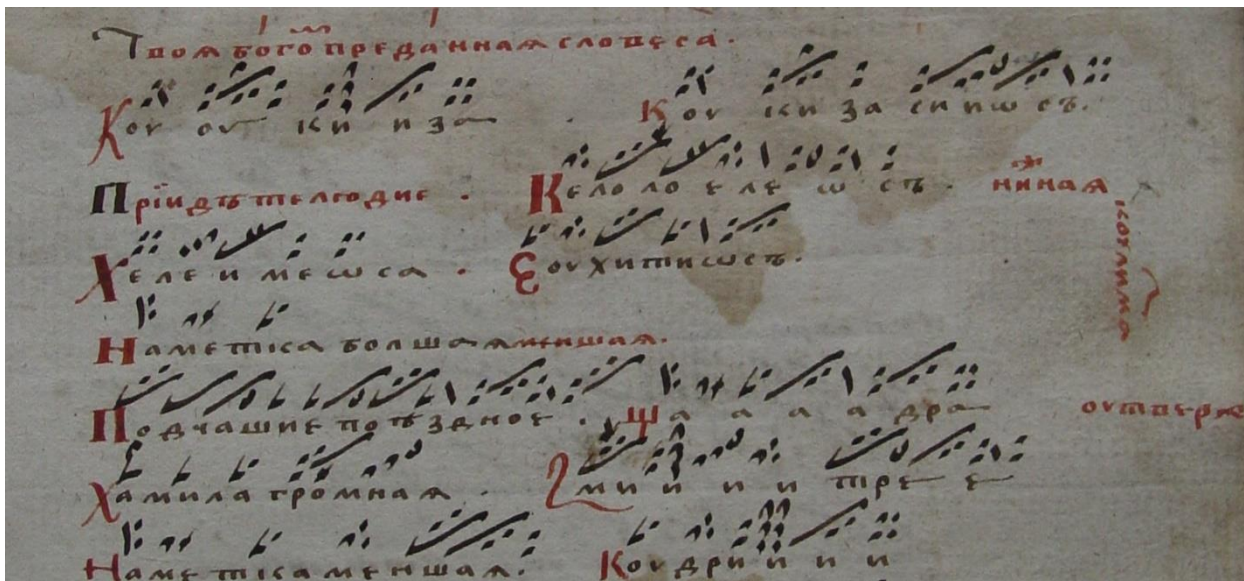 Твоя богоⷨ преданная словеса.
Коу оу ки и за . Коу ки за си и ѡ съ.
Прїидѣте людие . Ке ло ло е ле ѡ съ . нн҃ная
Хе ле и ме ѡ са . Еоухитиѡсъ.
Наметка болшая меншая.
Подчашие поѣздное . Ша а а а дра
Хамила громная . Зми и и и тре е
Наметка меншая. Коудри и и и